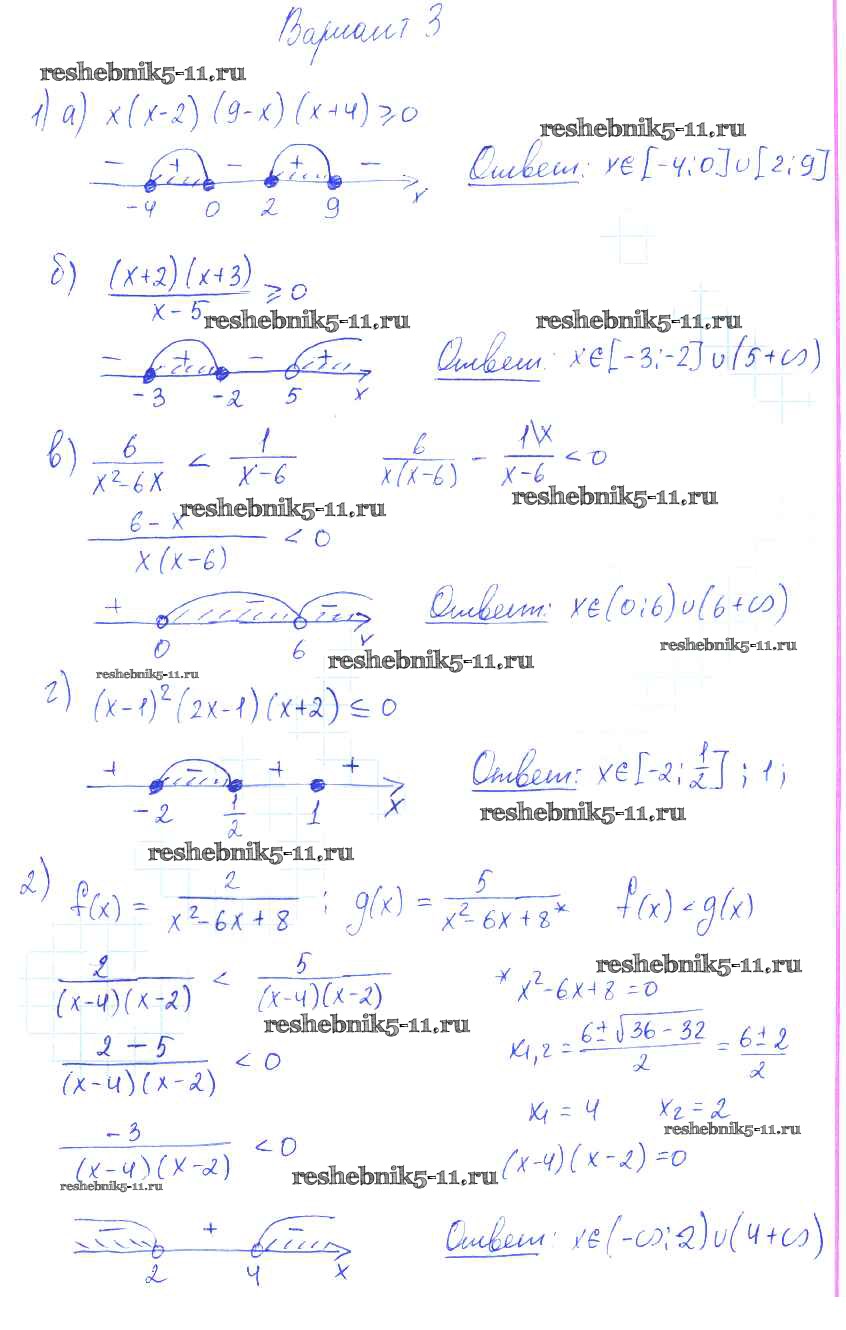 Вариант 3
reshebnik5-11.ru
1) а) x(x-2)(9-x)(x+4)≥0
reshebnik5-11.ru
- + - + -
-4 0 2 9 x
Ответ: x∈[-4;0]∪[2;9]
б) (x+2)(x+3)/(x-5) ≥0
reshebnik5-11.ru reshebnik5-11.ru
- + - +
-3 -2 5 x
Ответ: x∈[-3;-2]∪(5+∞)
в) 6/(x²-6x) < 1/(x-6) 6/(x(x-6)) - 1\x/(x-6) <0
reshebnik5-11.ru reshebnik5-11.ru
(6-x)/(x(x-6)) <0
+ - -
0 6 x
Ответ: x∈(0;6)∪(6+∞)
reshebnik5-11.ru reshebnik5-11.ru
reshebnik5-11.ru
г) (x-1)²(2x-1)(x+2)≤0
+ - + +
-2 1/2 1 x
Ответ: x∈[-2;1/2];1;
reshebnik5-11.ru
reshebnik5-11.ru
2) f(x) = 2/(x²-6x+8) ; g(x) = 5/(x²-6x+8*) f(x)<g(x)
2/((x-4)(x-2)) < 5/((x-4)(x-2))
reshebnik5-11.ru
(2-5)/((x-4)(x-2)) <0
-3/((x-4)(x-2)) <0
reshebnik5-11.ru
reshebnik5-11.ru
* x²-6x+8=0
x1,2 = (6±√36-32)/2 = (6±2)/2
x1 = 4 x2 = 2
reshebnik5-11.ru
(x-4)(x-2)=0
reshebnik5-11.ru
- + -
2 4 x
Ответ: x∈(-∞;2)∪(4+∞)